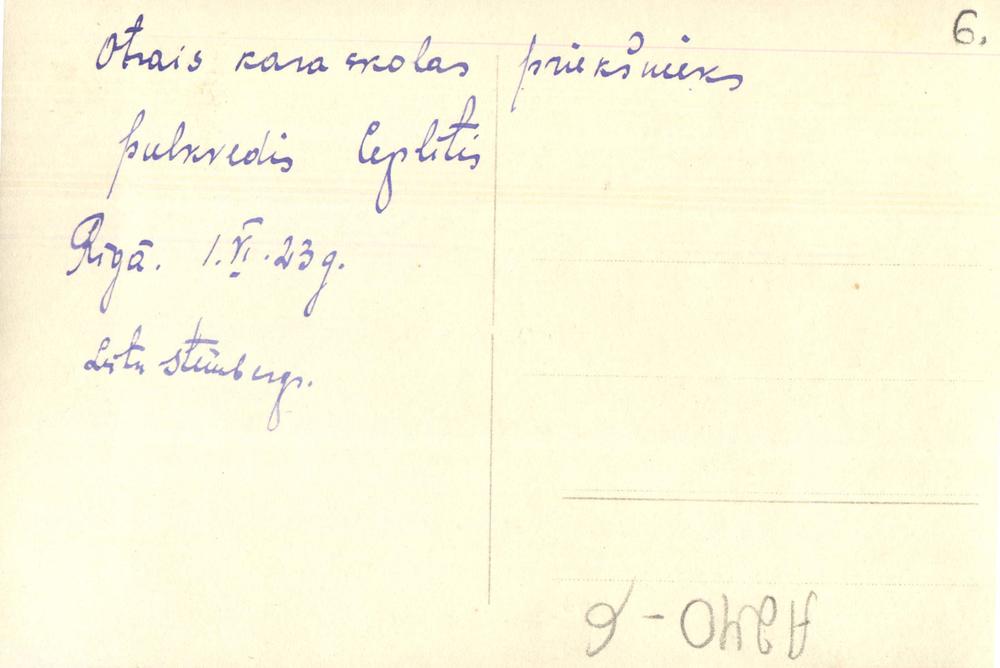 6.
Otrais kara skolas priekšnieks
pulkvedis Ceplītis
Rīgā. 1.VI.23g.
Šteinbergs.
A240-6